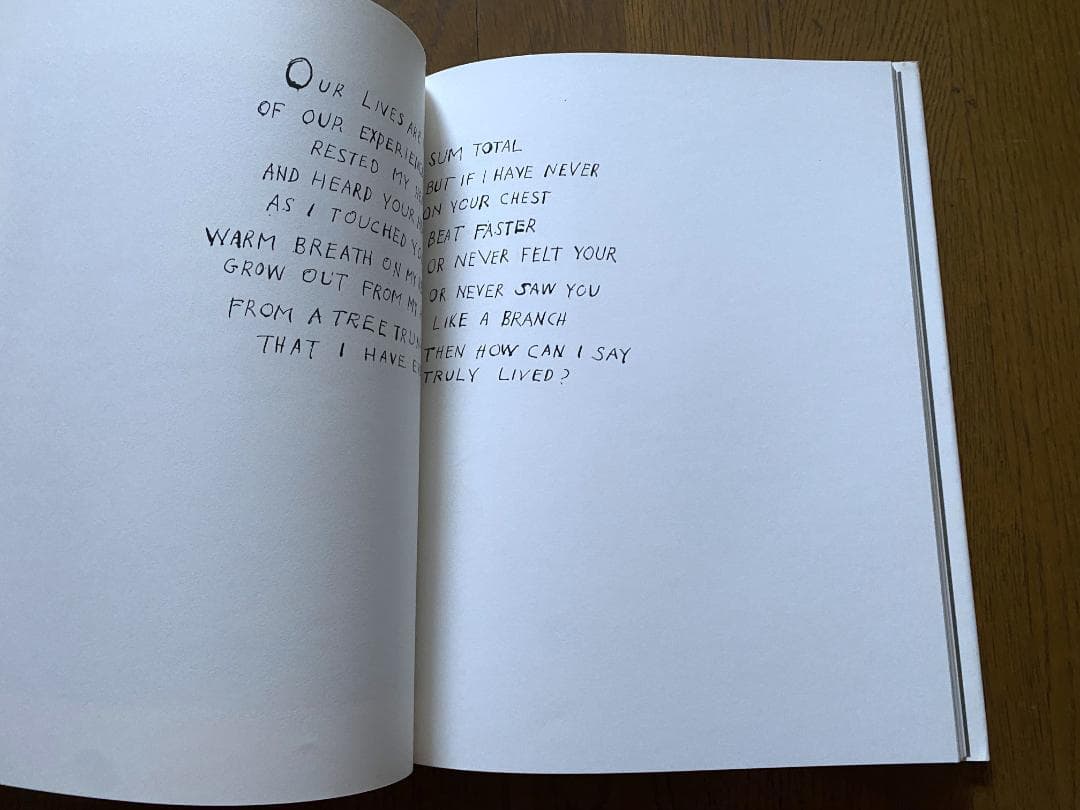 OUR LIVES ARE SUM TOTAL
OF OUR BUT IF I HAVE NEVER
RESTED MY ON YOUR CHEST
AND HEARD YOUR BEAT FASTER
AS I TOUCHED OR NEVER FELT YOUR
WARM BREATH ON MY OR NEVER SAW YOU
GROW OUT FROM MY LIKE A BRANCH
FROM A TREE THEN HOW CAN I SAY
THAT I HAVE TRULY LIVED?